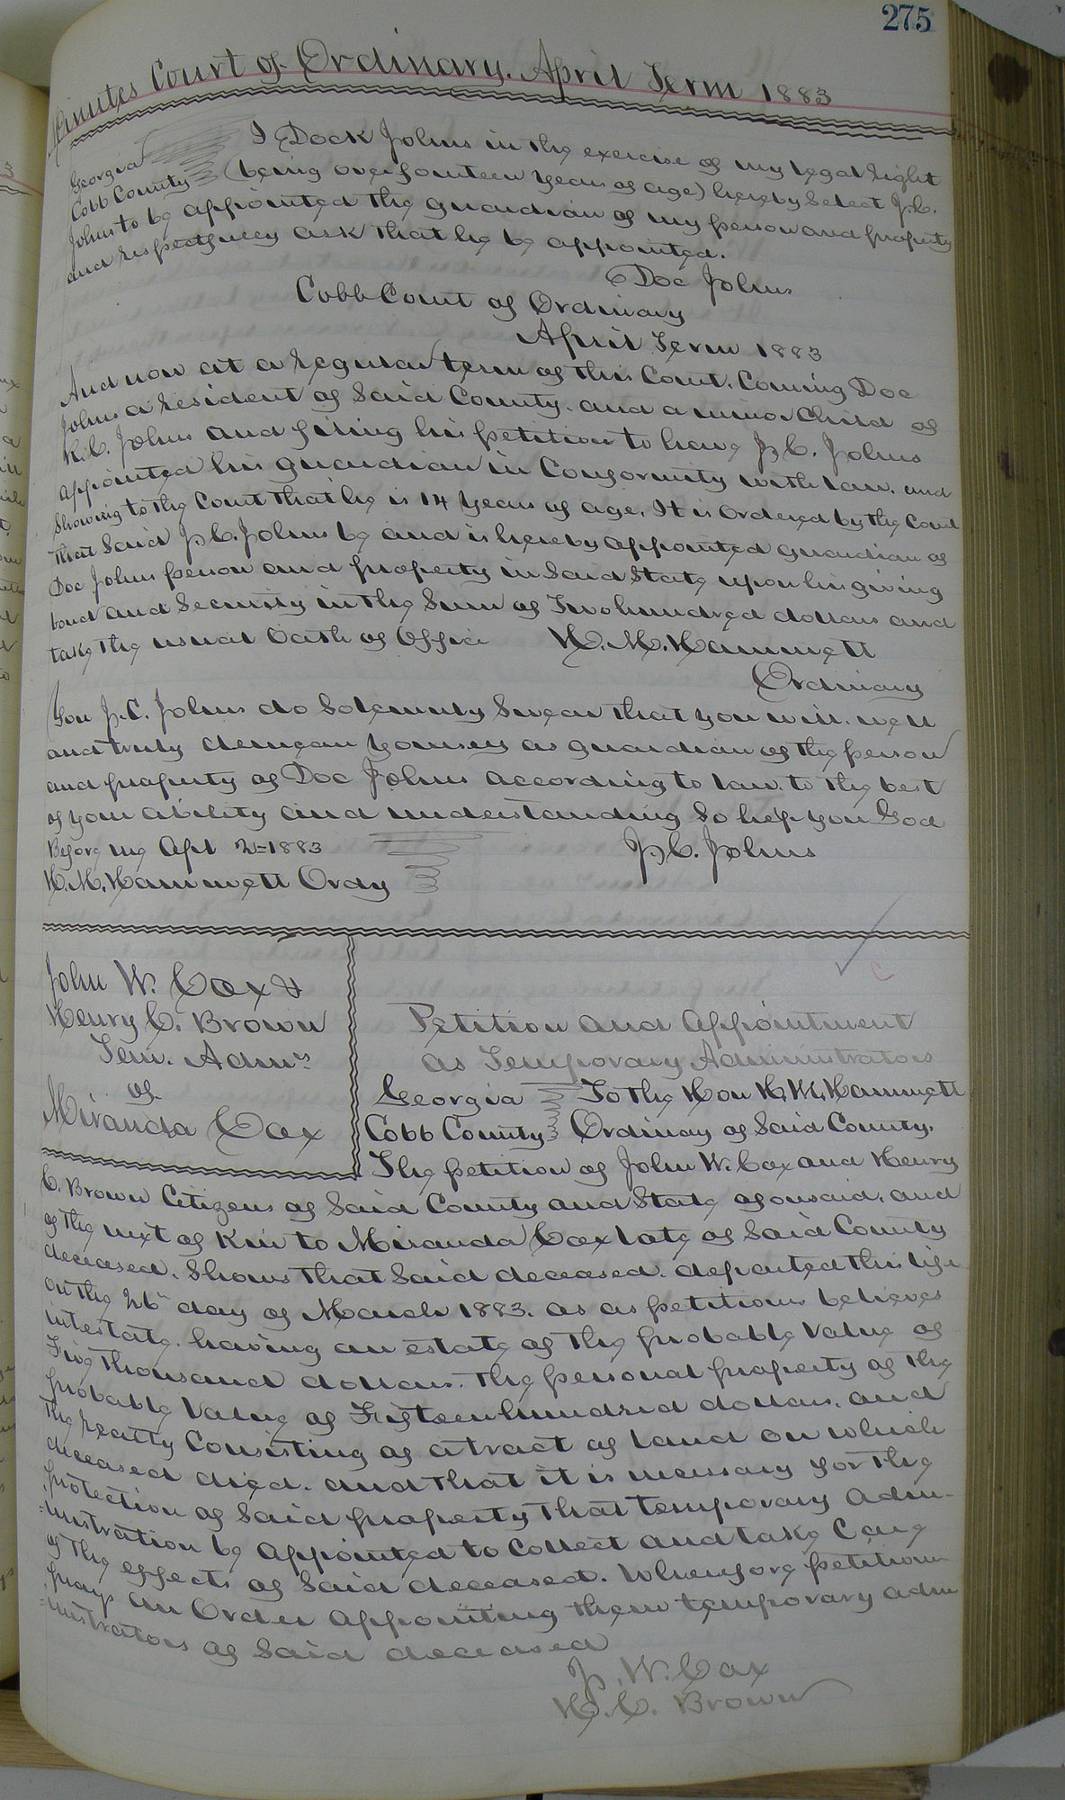 275
Minutes Court of Ordinary. April Term 1883
Georgia I Dock Johns in the exercise of my legal right
Cobb County (being over fourteen years of age) hereby select J.C.
Johns to be appointed the guardian of my person and property
and respectfully ask that he be appointed.
Doc Johns
Cobb Court of Ordinary
April Term 1883
And now at a regular term of this Court, Coming Doc
Johns a resident of Said County. and a minor Child of
R.C. Johns and filing his petition to have J.C. Johns
appointed his guardian in Conformity with law. and
Showing to the Court that he is 14 years of age. It is Ordered by the Court
that Said J.C. Johns be and is hereby appointed guardian of
Doc Johns person and property in Said State upon his giving
bond and Security in the Sum of Two hundred dollars and
take the usual Oath of Office H. M. Hammett
Ordinary
You J.C. Johns do Solemnly Swear that you will. well
and truly demean yourself as guardian of the person
and property of Doc Johns according to law. to the best
of your ability and understanding So help you God
Before me Apl 2=1883 J.C. Johns
H. M. Hammett Ordy
John W. Cox &
Henry C. Brown
Tem. Admrs
of
Miranda Cox
Petition and appointment
as Temporary Administrators
Georgia To the Hon H. M. Hammett
Cobb County Ordinary of Said County.
The petition of John W. Cox and Henry
C. Brown Citizens of Said County and State aforesaid. and
of the next of Kin to Miranda Cox late of Said County
deceased. Shows that Said deceased. departed this life
on the 26 day of March 1883. as as petitions believes
intestate. having an estate of the probable Value of
Five thousand dollars. the personal property of the
probable Value of Fifteen hundred dollars. and
the realty Consisting of a tract of land on which
deceased died. and that it is necessary for the
protection of Said property that temporary Adm-
=inistration be appointed to Collect and take Care
of the effects of Said deceased. Wherefore petitions
prays an Order appointing them temporary adm
=inistrators of Said deceased
J. W. Cox
H. C. Brown